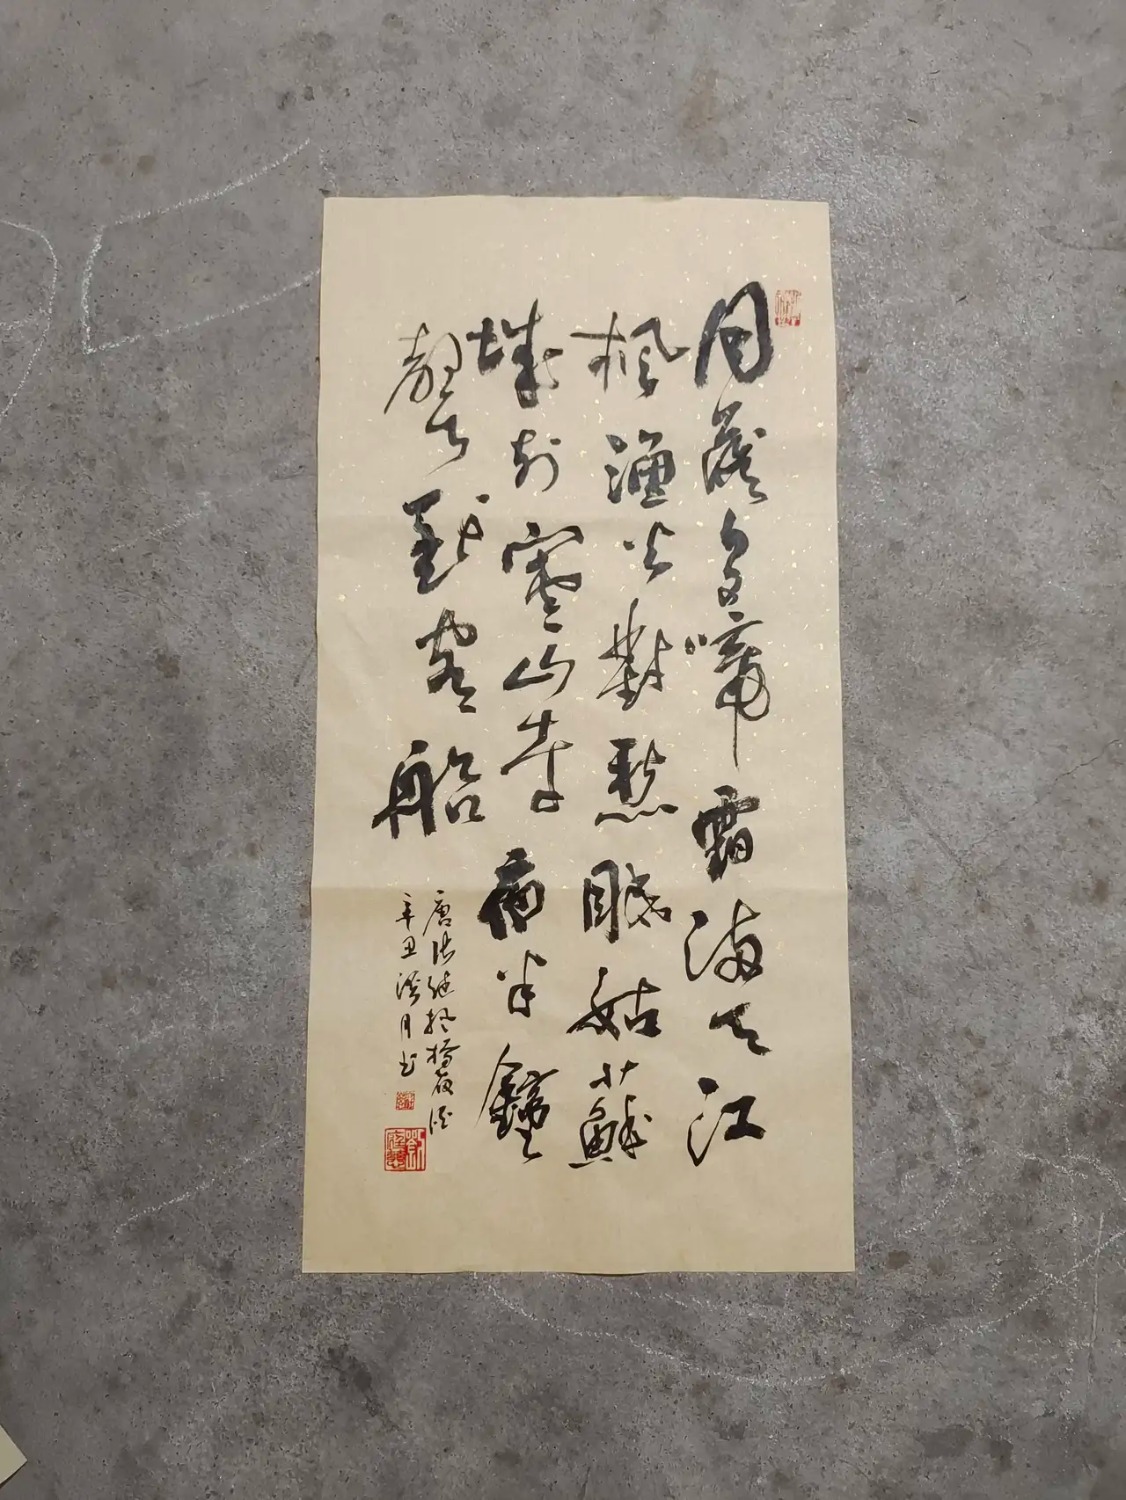 月落烏啼霜滿天江
楓漁火對愁眠姑蘇
城外寒山寺夜半鐘
聲到客船
唐張繼楓橋夜泊
辛丑 月書